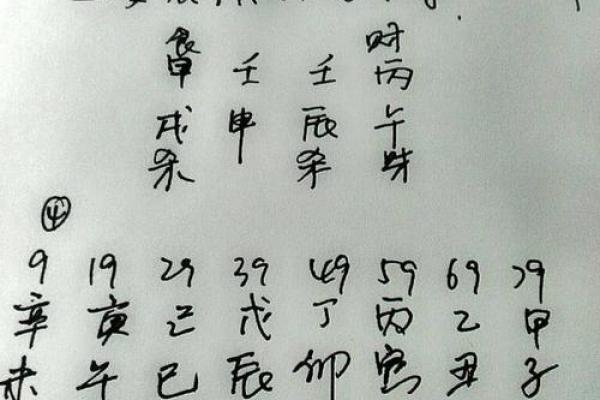 食 财
甲 壬 壬 丙
戌 申 辰 午
杀 杀 财
④
9 19 29 39 49 59 69 79
辛 庚 己 戊 丁 丙 乙 甲
未 午 巳 辰 卯 寅 丑 子